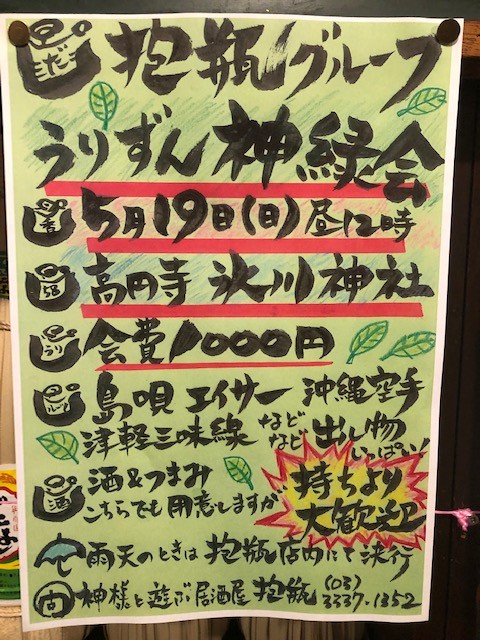 抱瓶グループ
うりずん神縁会
5月19日(日)昼12時
高円寺 氷川神社
会費1000円
島唄 エイサー 沖縄空手
津軽三味線 などなど 出し物いっぱい!
酒&つまみ
こちらでも用意しますが
持ちより
大歓迎
雨天のときは抱瓶店内にて決行
問 神様と遊ぶ居酒屋 抱瓶 (03)3337-1352